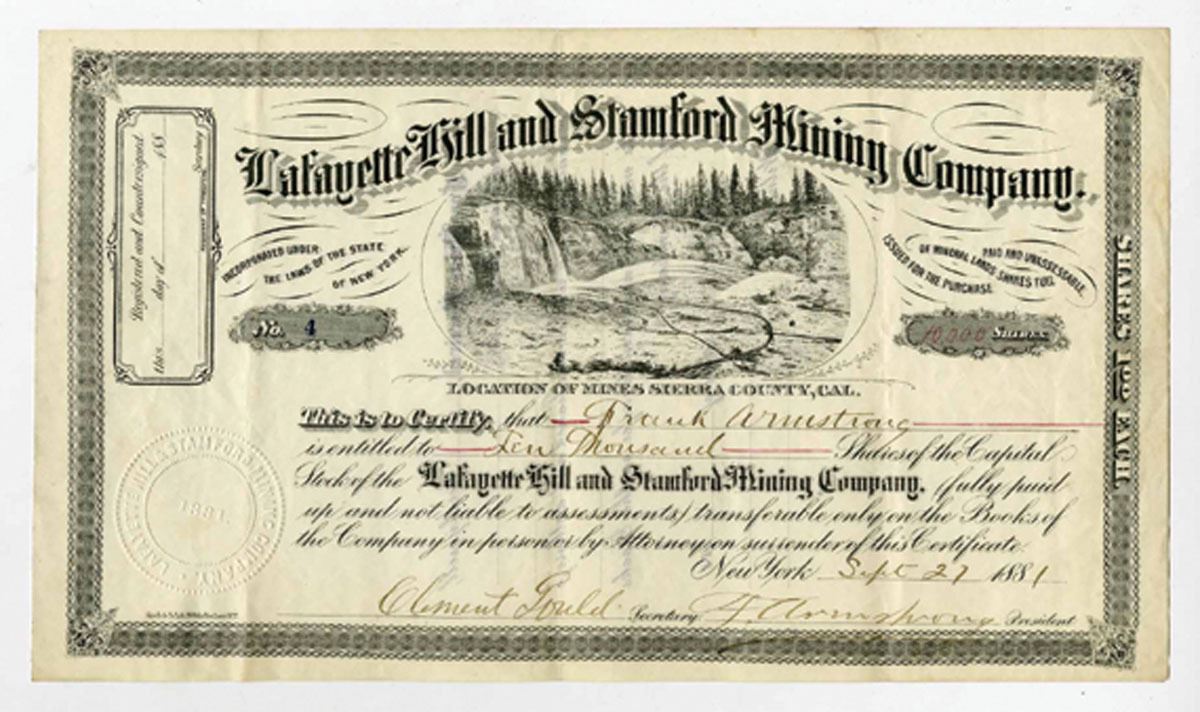 Lafayette Hill and Stamford Mining Company.
INCORPORATED UNDER
THE LAWS OF THE STATE
OF NEW YORK.
ISSUED FOR THE PURCHASE
OF MINERAL LANDS SHARES FULL
PAID AND UNASSESSABLE.
No. 4
10,000 SHARES
Registered and Countersigned
this day of 188
Secretary
SHARES $100 EACH
LOCATION OF MINES SIERRA COUNTY, CAL.
This is to Certify, that Frank Armstrong
is entitled to Ten Thousand Shares of the Capital
Stock of the Lafayette Hill and Stamford Mining Company. (fully paid
up and not liable to assessments) transferable only on the Books of
the Company in person or by Attorney on surrender of this Certificate.
New York Sept 27 1881
Clement Gould Secretary F. Armstrong President
LAFAYETTE HILL & STAMFORD MINING COMPANY
1881.